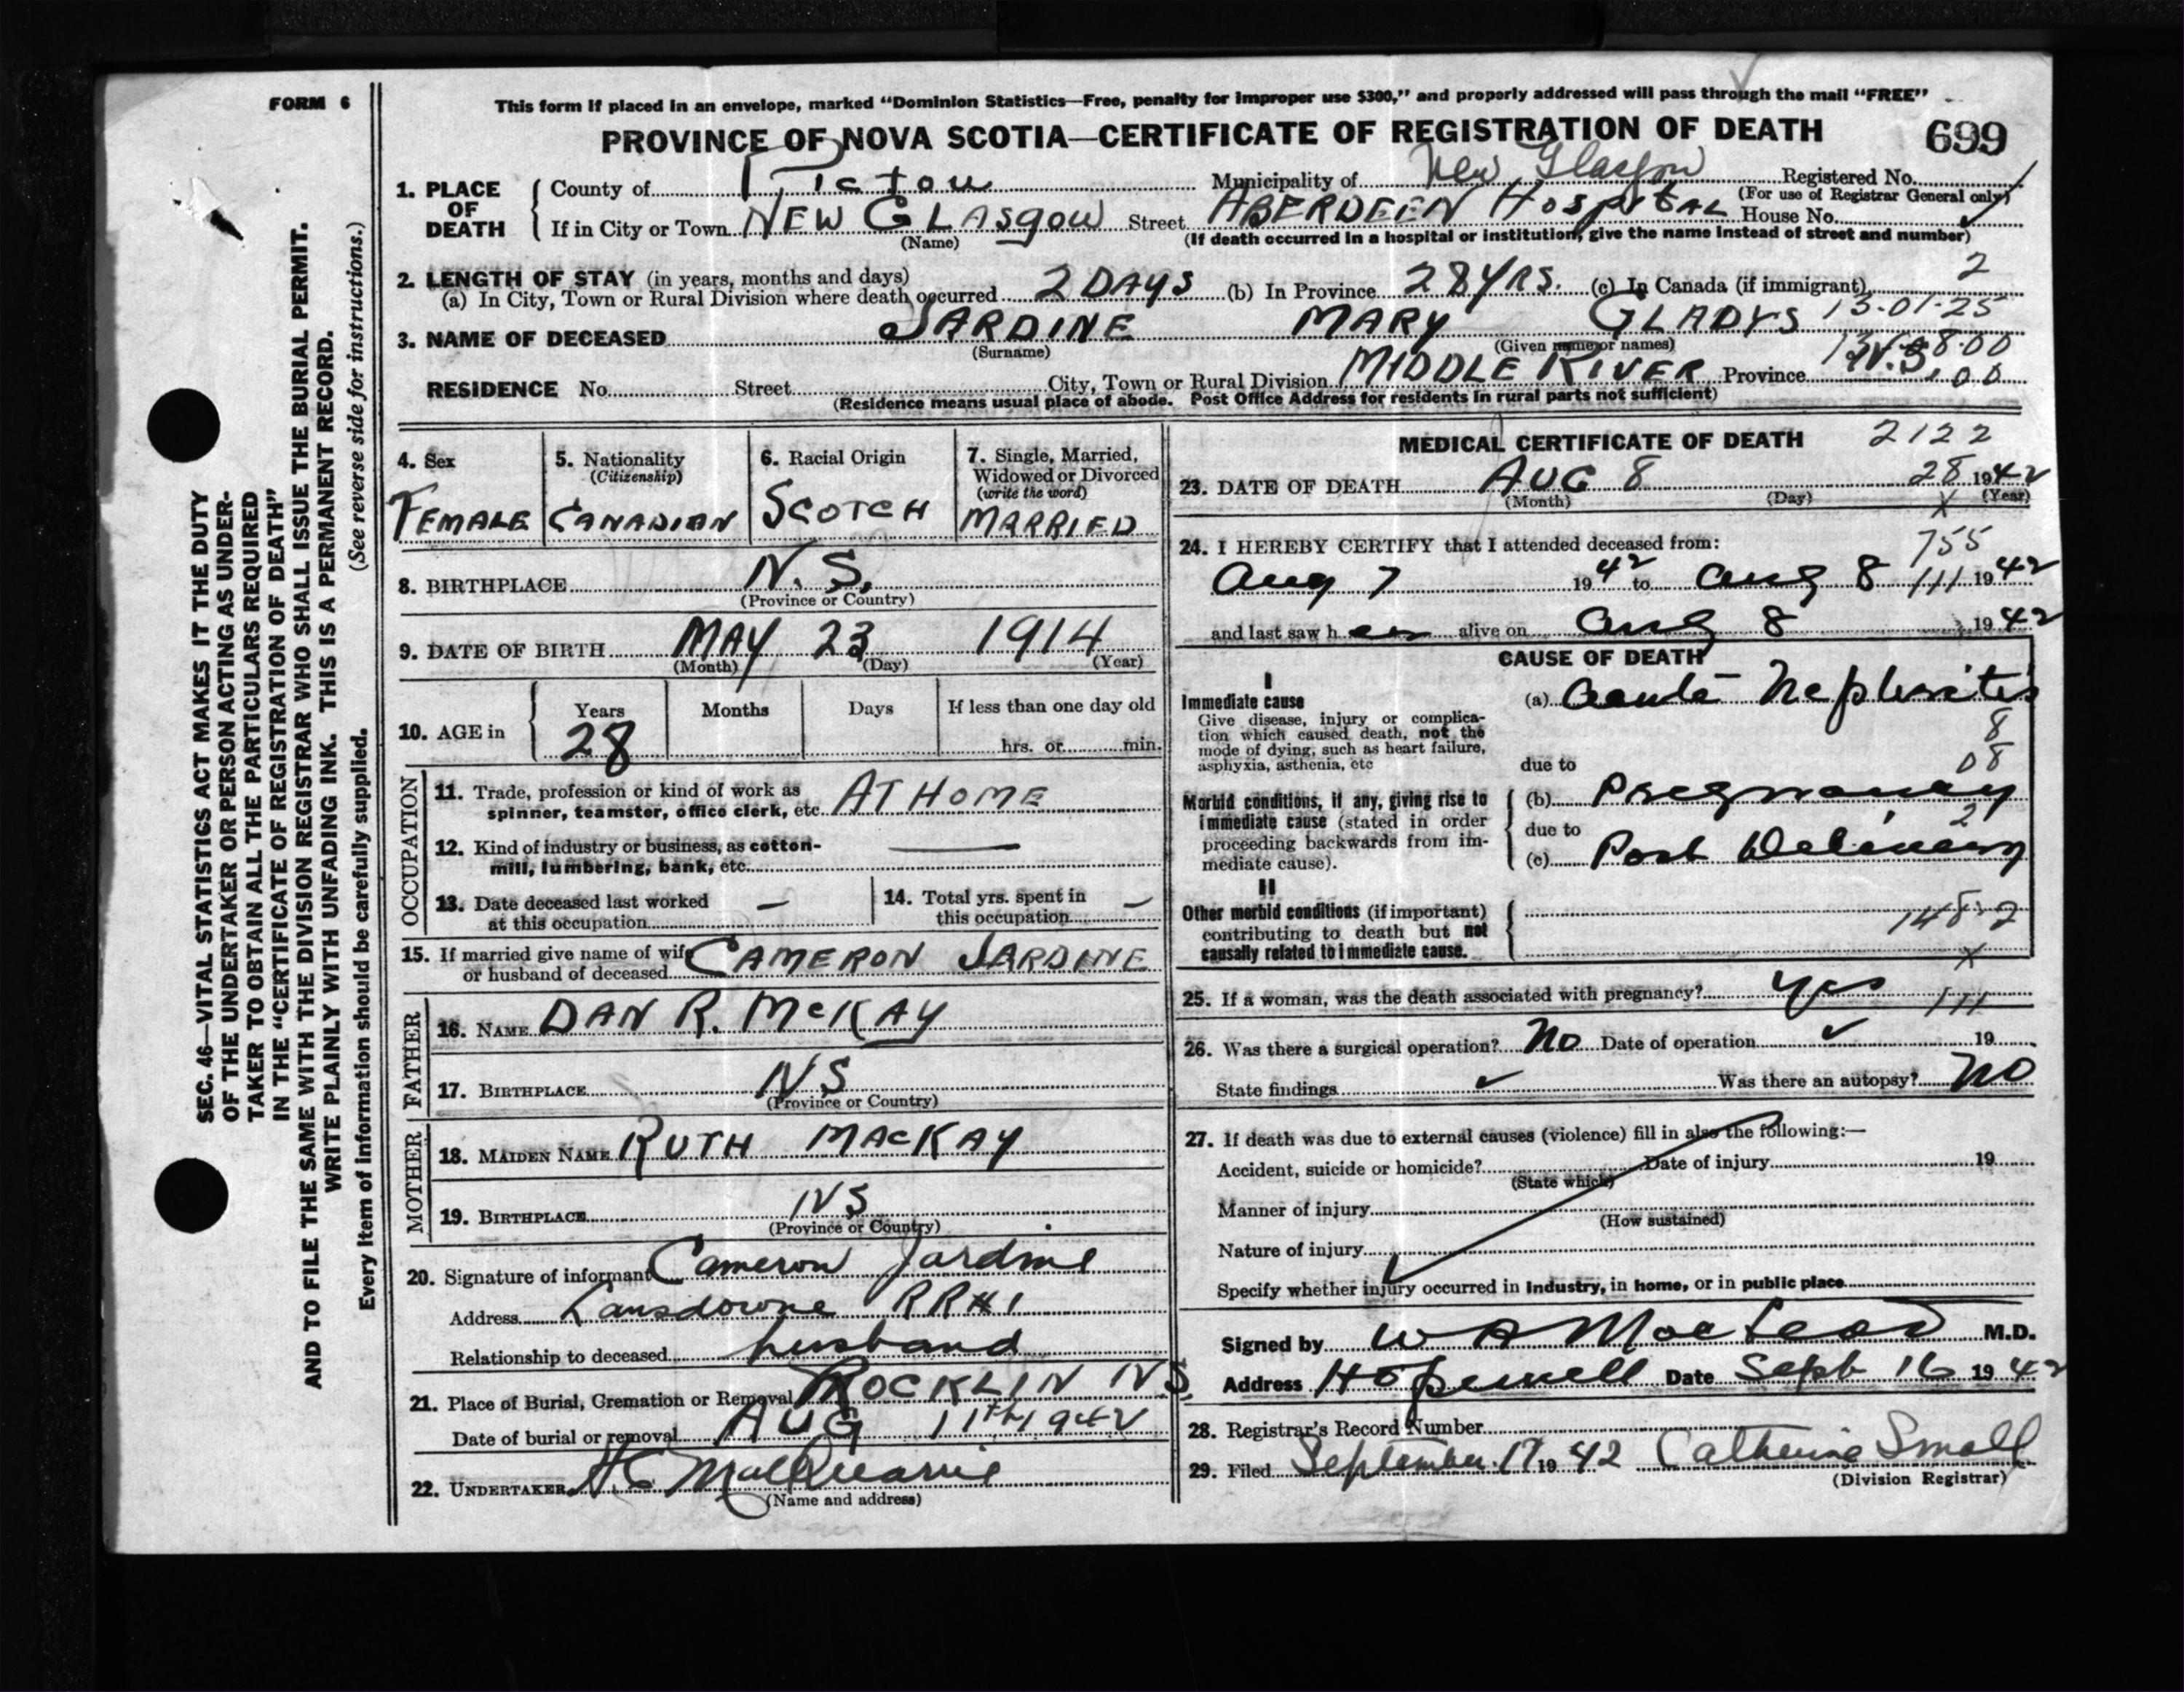 FORM 6
This form if placed in an envelope, marked "Dominion Statistics—Free, penalty for improper use $300," and properly addressed will pass through the mail "FREE"
PROVINCE OF NOVA SCOTIA—CERTIFICATE OF REGISTRATION OF DEATH 699
SEC. 46—VITAL STATISTICS ACT MAKES IT THE DUTY
OF THE UNDERTAKER OR PERSON ACTING AS UNDER-
TAKER TO OBTAIN ALL THE PARTICULARS REQUIRED
IN THE "CERTIFICATE OF REGISTRATION OF DEATH"
AND TO FILE THE SAME WITH THE DIVISION REGISTRAR WHO SHALL ISSUE THE BURIAL PERMIT.
WRITE PLAINLY WITH UNFADING INK. THIS IS A PERMANENT RECORD.
Every item of information should be carefully supplied. (See reverse side for instructions.)
1. PLACE OF DEATH
County of Pictou Municipality of New Glasgow Registered No.
(For use of Registrar General only)
If in City or Town NEW GLASGOW Street ABERDEEN HOSPITAL House No.
(Name) (If death occurred in a hospital or institution, give the name instead of street and number)
2. LENGTH OF STAY (in years, months and days) 2
(a) In City, Town or Rural Division where death occurred 2 DAYS (b) In Province 28 YRS. (c) In Canada (if immigrant)
3. NAME OF DECEASED JARDINE MARY GLADYS 13-01-25
(Surname) (Given name or names)
RESIDENCE No. Street City, Town or Rural Division MIDDLE RIVER Province N.S. 00
(Residence means usual place of abode. Post Office Address for residents in rural parts not sufficient)
4. Sex FEMALE
5. Nationality (Citizenship) CANADIAN
6. Racial Origin SCOTCH
7. Single, Married, Widowed or Divorced (write the word) MARRIED
8. BIRTHPLACE N.S.
(Province or Country)
9. DATE OF BIRTH MAY 23 1914
(Month) (Day) (Year)
10. AGE in Years Months Days If less than one day old
28 hrs. or min.
OCCUPATION
11. Trade, profession or kind of work as
spinner, teamster, office clerk, etc. AT HOME
12. Kind of industry or business, as cotton-
mill, lumbering, bank, etc. —
13. Date deceased last worked
at this occupation —
14. Total yrs. spent in
this occupation —
15. If married give name of wife
or husband of deceased CAMERON JARDINE
FATHER
16. NAME DAN R. McKAY
17. BIRTHPLACE NS
(Province or Country)
MOTHER
18. MAIDEN NAME RUTH MACKAY
19. BIRTHPLACE NS
(Province or Country)
20. Signature of informant Cameron Jardine
Address Lansdowne RR#1
Relationship to deceased husband
21. Place of Burial, Cremation or Removal ROCKLIN N.S.
Date of burial or removal AUG 11th 1942
22. UNDERTAKER
(Name and address)
MEDICAL CERTIFICATE OF DEATH 2122
23. DATE OF DEATH AUG 8 28 1942
(Month) (Day) (Year)
X
24. I HEREBY CERTIFY that I attended deceased from: 755
Aug 7 1942 to Aug 8 111 1942
and last saw her alive on Aug 8 1942
CAUSE OF DEATH
I
Immediate cause
Give disease, injury or complica-
tion which caused death, not the
mode of dying, such as heart failure,
asphyxia, asthenia, etc
(a) Acute Nephritis
8
08
due to
Morbid conditions, if any, giving rise to
immediate cause (stated in order
proceeding backwards from im-
mediate cause).
(b) Pregnancy
due to 2
(c) Post Delivery
II
Other morbid conditions (if important)
contributing to death but not
causally related to immediate cause.
148.2
X
25. If a woman, was the death associated with pregnancy? yes 111
26. Was there a surgical operation? No Date of operation 19
State findings Was there an autopsy? NO
27. If death was due to external causes (violence) fill in also the following:—
Accident, suicide or homicide? Date of injury 19
(State which)
Manner of injury
(How sustained)
Nature of injury
Specify whether injury occurred in industry, in home, or in public place
Signed by W A MacLeod M.D.
Address Hopewell Date Sept 16 1942
28. Registrar's Record Number
29. Filed September 17 1942 Catherine Small
(Division Registrar)